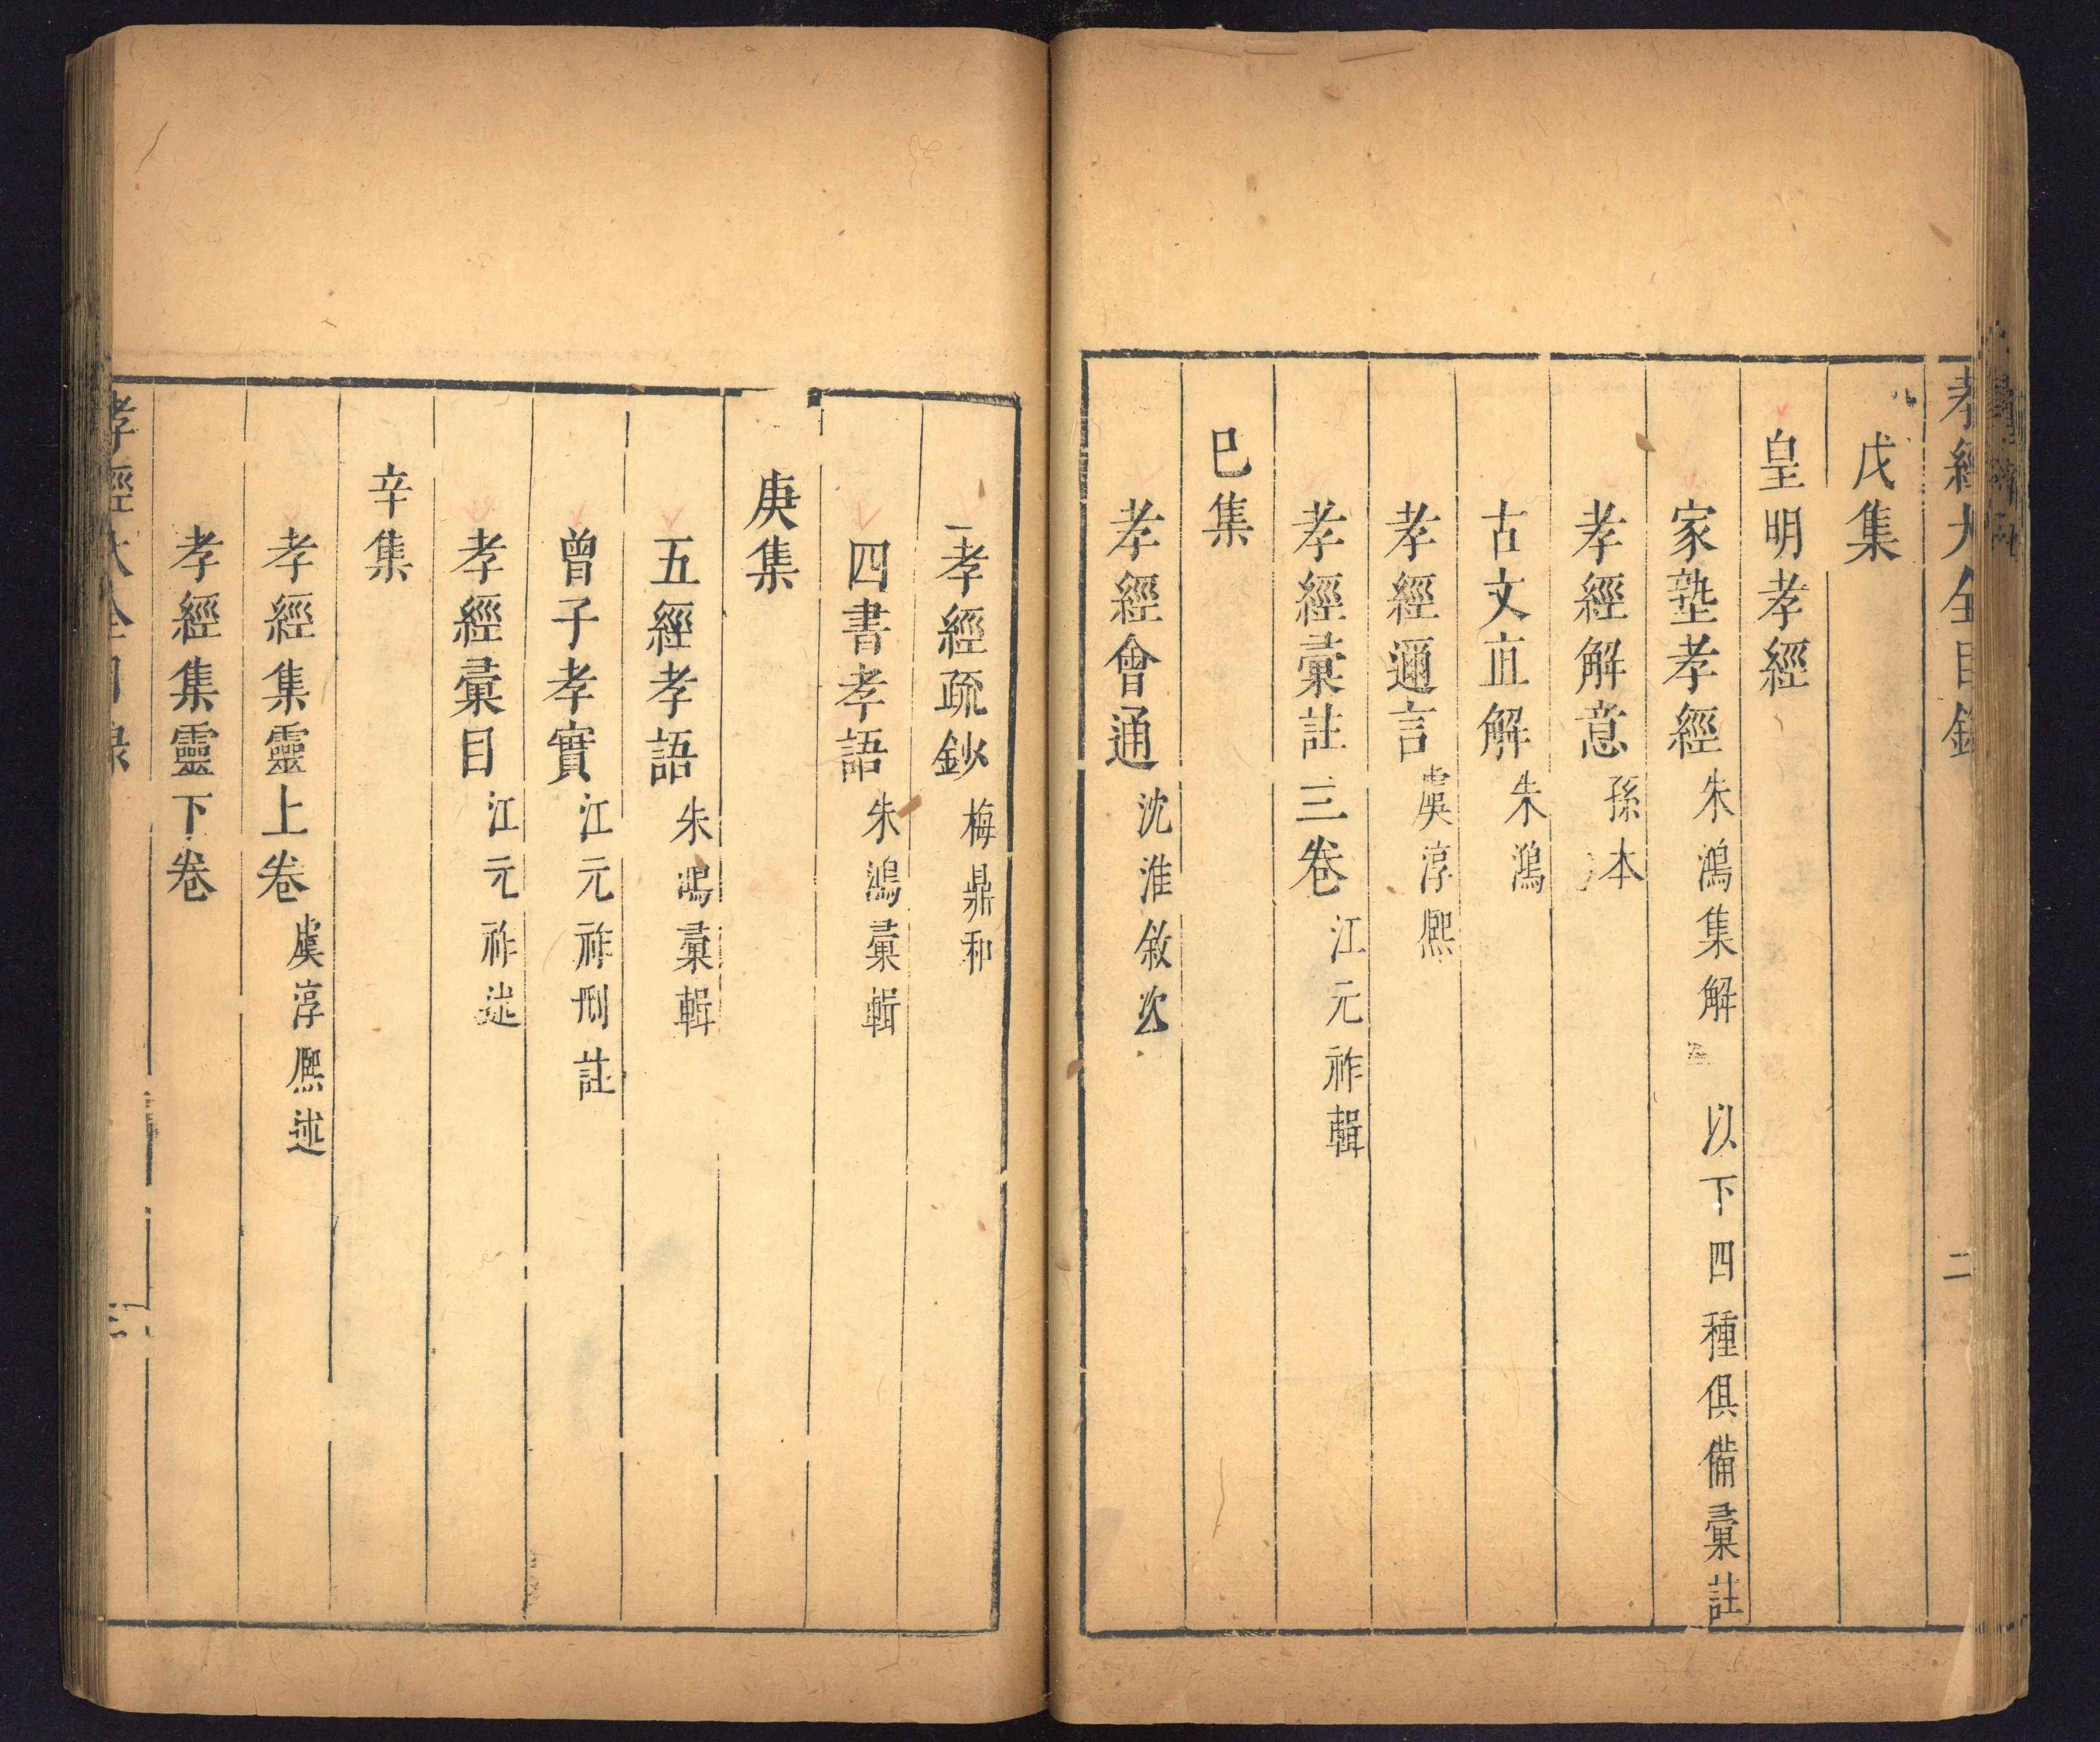 孝經大全目錄 二
戊集
皇明孝經
家塾孝經 朱鴻集解 以下四種俱備彚註
孝經解意 孫本
古文直解 朱鴻
孝經邇言 虞淳熈
孝經彚註三卷 江元祚輯
巳集
孝經會通 沈淮敘次
孝經疏鈔 梅鼎和
四書孝語 朱鴻彚輯
庚集
五經孝語 朱鴻彚輯
曾子孝實 江元祚刪註
孝經彚目 江元祚述
辛集
孝經集靈上卷 虞淳熈述
孝經集靈下卷
孝經大全目錄